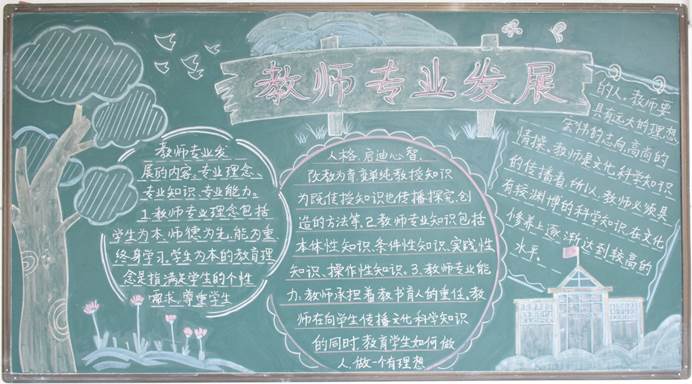 教师专业发展
教师专业发
展的内容。专业理念、
专业知识、专业能力。
1.教师专业理念包括
学生为本、师德为先、能为重、
终身学习。学生为本的教育理
念是指满足学生的个性
需求、尊重学生
人格、启迪心智、
改教为育变单纯教授知识
为既传授知识也传播探究、创
造的方法等。2.教师专业知识包括
本体性知识、条件性知识、实践性
知识、操作性知识。3.教师专业能
力。教师承担着教书育人的重任、教
师在向学生传播文化科学知识
的同时,教育学生如何做
人,做一个有理想
的人。教师要
具有远大的理想
宏伟的志向,高尚的
情操。教师是文化科学知识
的传播者,所以教师必须具
有较渊博的科学知识,在文化
修养上逐渐达到较高的
水平。